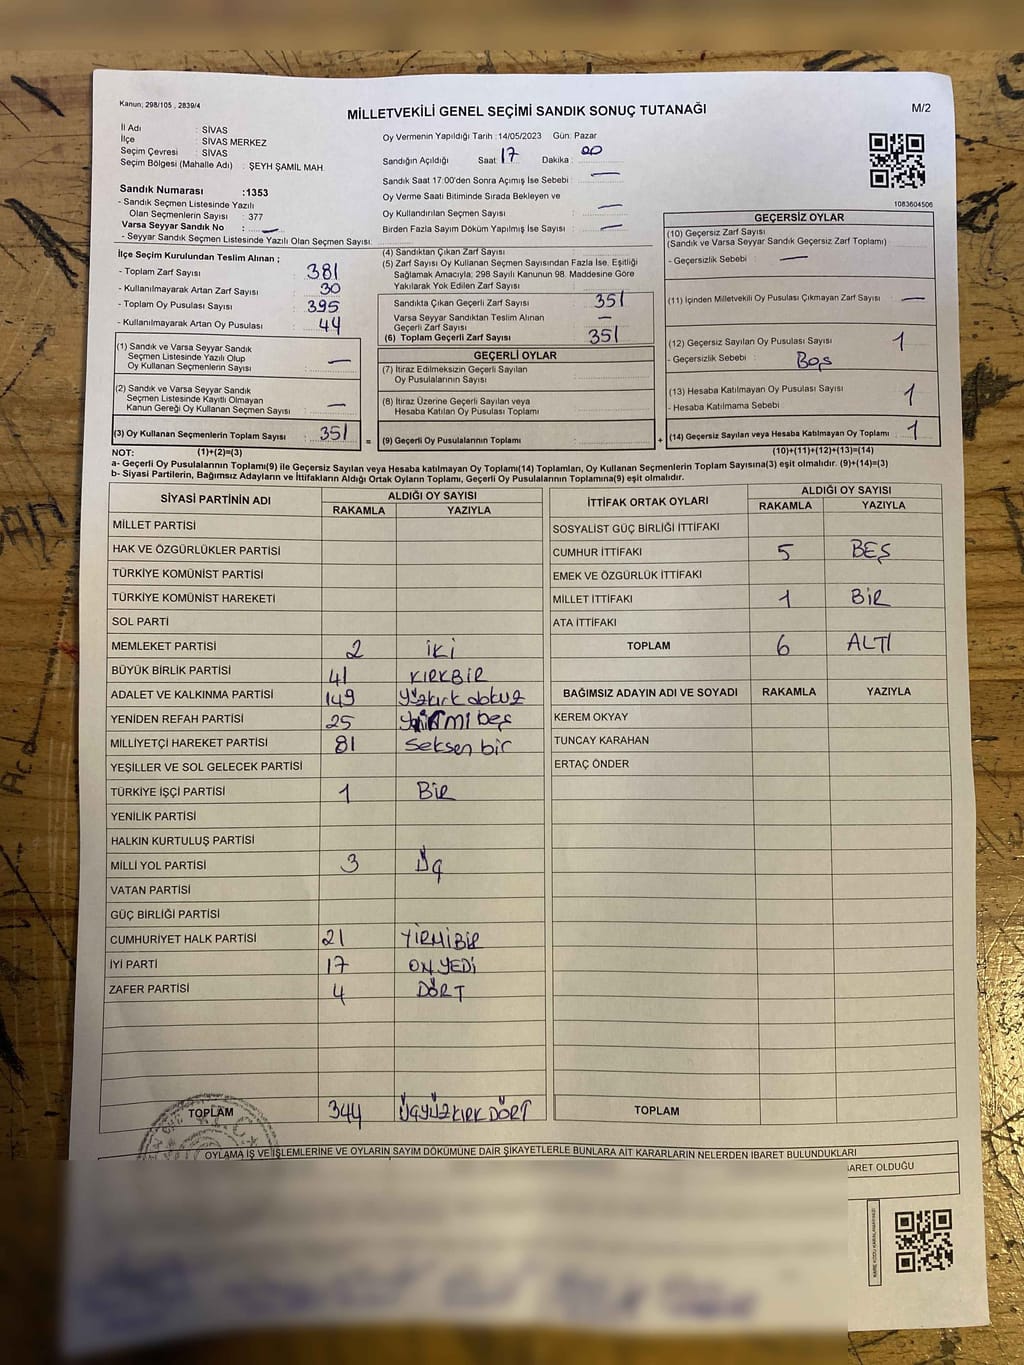 Kanun; 298/105 , 2839/4
MİLLETVEKİLİ GENEL SEÇİMİ SANDIK SONUÇ TUTANAĞI
M/2
İl Adı : SİVAS
İlçe : SİVAS MERKEZ
Seçim Çevresi : SİVAS
Seçim Bölgesi (Mahalle Adı) : ŞEYH ŞAMİL MAH.
Sandık Numarası :1353
- Sandık Seçmen Listesinde Yazılı
Olan Seçmenlerin Sayısı : 377
Varsa Seyyar Sandık No : —
- Seyyar Sandık Seçmen Listesinde Yazılı Olan Seçmen Sayısı:
Oy Vermenin Yapıldığı Tarih :14/05/2023 Gün: Pazar
Sandığın Açıldığı Saat: 17 Dakika : 00
Sandık Saat 17:00'den Sonra Açımış İse Sebebi : —
Oy Verme Saati Bitiminde Sırada Bekleyen ve
Oy Kullandırılan Seçmen Sayısı : —
Birden Fazla Sayım Döküm Yapılmış İse Sayısı : —
1083604506
İlçe Seçim Kurulundan Teslim Alınan ;
- Toplam Zarf Sayısı : 381
- Kullanılmayarak Artan Zarf Sayısı : 30
- Toplam Oy Pusulası Sayısı : 395
- Kullanılmayarak Artan Oy Pusulası : 44
(1) Sandık ve Varsa Seyyar Sandık
Seçmen Listesinde Yazılı Olup
Oy Kullanan Seçmenlerin Sayısı : —
(2) Sandık ve Varsa Seyyar Sandık
Seçmen Listesinde Kayıtlı Olmayan
Kanun Gereği Oy Kullanan Seçmen Sayısı : —
(3) Oy Kullanan Seçmenlerin Toplam Sayısı : 351 =
(4) Sandıktan Çıkan Zarf Sayısı :
(5) Zarf Sayısı Oy Kullanan Seçmen Sayısından Fazla İse, Eşitliği
Sağlamak Amacıyla; 298 Sayılı Kanunun 98. Maddesine Göre
Yakılarak Yok Edilen Zarf Sayısı :
Sandıkta Çıkan Geçerli Zarf Sayısı : 351
Varsa Seyyar Sandıktan Teslim Alınan
Geçerli Zarf Sayısı : —
(6) Toplam Geçerli Zarf Sayısı : 351
GEÇERLİ OYLAR
(7) İtiraz Edilmeksizin Geçerli Sayılan
Oy Pusulalarının Sayısı :
(8) İtiraz Üzerine Geçerli Sayılan veya
Hesaba Katılan Oy Pusulası Toplamı :
(9) Geçerli Oy Pusulalarının Toplamı : +
GEÇERSİZ OYLAR
(10) Geçersiz Zarf Sayısı
(Sandık ve Varsa Seyyar Sandık Geçersiz Zarf Toplamı) :
- Geçersizlik Sebebi : —
(11) İçinden Milletvekili Oy Pusulası Çıkmayan Zarf Sayısı : —
(12) Geçersiz Sayılan Oy Pusulası Sayısı : 1
- Geçersizlik Sebebi : Boş
(13) Hesaba Katılmayan Oy Pusulası Sayısı : 1
- Hesaba Katılmama Sebebi :
(14) Geçersiz Sayılan veya Hesaba Katılmayan Oy Toplamı : 1
NOT: (1)+(2)=(3)
(10)+(11)+(12)+(13)=(14)
a- Geçerli Oy Pusulalarının Toplamı(9) ile Geçersiz Sayılan veya Hesaba katılmayan Oy Toplamı(14) Toplamları, Oy Kullanan Seçmenlerin Toplam Sayısına(3) eşit olmalıdır. (9)+(14)=(3)
b- Siyasi Partilerin, Bağımsız Adayların ve İttifakların Aldığı Ortak Oyların Toplamı, Geçerli Oy Pusulalarının Toplamına(9) eşit olmalıdır.
SİYASİ PARTİNİN ADI ALDIĞI OY SAYISI
RAKAMLA YAZIYLA
MİLLET PARTİSİ
HAK VE ÖZGÜRLÜKLER PARTİSİ
TÜRKİYE KOMÜNİST PARTİSİ
TÜRKİYE KOMÜNİST HAREKETİ
SOL PARTİ
MEMLEKET PARTİSİ 2 iKi
BÜYÜK BİRLİK PARTİSİ 41 KIRKBİR
ADALET VE KALKINMA PARTİSİ 149 Yüzkırk dokuz
YENİDEN REFAH PARTİSİ 25 yirmi beş
MİLLİYETÇİ HAREKET PARTİSİ 81 Seksen bir
YEŞİLLER VE SOL GELECEK PARTİSİ
TÜRKİYE İŞÇİ PARTİSİ 1 BİR
YENİLİK PARTİSİ
HALKIN KURTULUŞ PARTİSİ
MİLLİ YOL PARTİSİ 3 Üç
VATAN PARTİSİ
GÜÇ BİRLİĞİ PARTİSİ
CUMHURİYET HALK PARTİSİ 21 YİRMİBİR
İYİ PARTİ 17 ON YEDİ
ZAFER PARTİSİ 4 DÖRT
TOPLAM 344 ÜÇYÜZ KIRK DÖRT
İTTİFAK ORTAK OYLARI ALDIĞI OY SAYISI
RAKAMLA YAZIYLA
SOSYALİST GÜÇ BİRLİĞİ İTTİFAKI
CUMHUR İTTİFAKI 5 BEŞ
EMEK VE ÖZGÜRLÜK İTTİFAKI
MİLLET İTTİFAKI 1 BİR
ATA İTTİFAKI
TOPLAM 6 ALTI
BAĞIMSIZ ADAYIN ADI VE SOYADI RAKAMLA YAZIYLA
KEREM OKYAY
TUNCAY KARAHAN
ERTAÇ ÖNDER
TOPLAM
OYLAMA İŞ VE İŞLEMLERİNE VE OYLARIN SAYIM DÖKÜMÜNE DAİR ŞİKAYETLERLE BUNLARA AİT KARARLARIN NELERDEN İBARET BULUNDUKLARI
BARET OLDUĞU